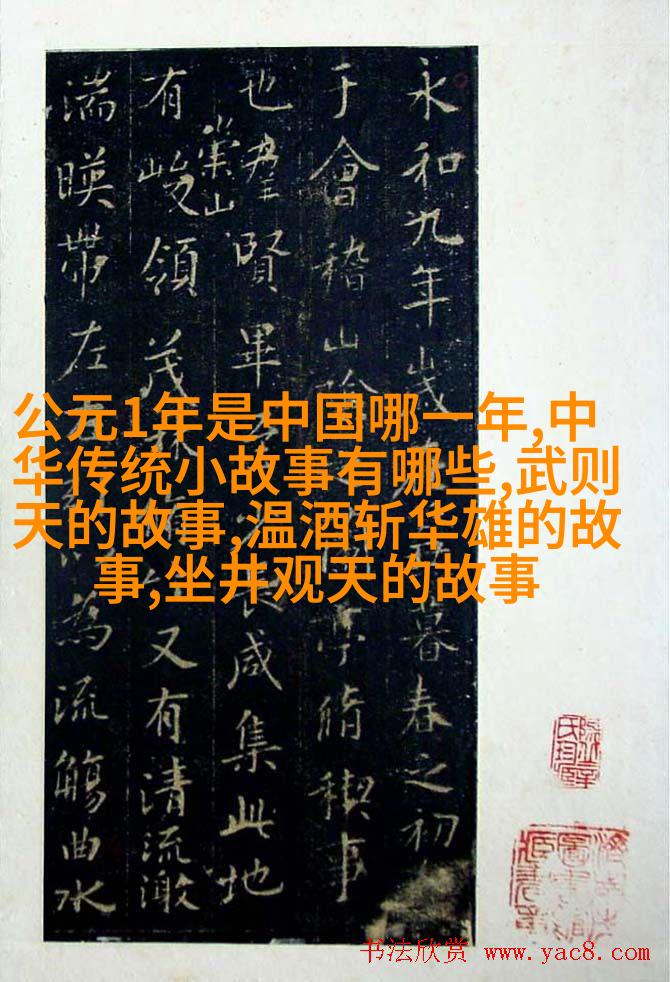 永和九年歲暮春之初
于會稽山陰亭脩稧事
也羣賢畢咸集此地
崇山
有峻領茂林又有清流激
湍暎帶左為流觴曲水
公元1年是中国哪一年,中
华传统小故事有哪些,武则
天的故事,温酒斩华雄的故
事,坐井观天的故事
书法欣赏 www.yac8.com